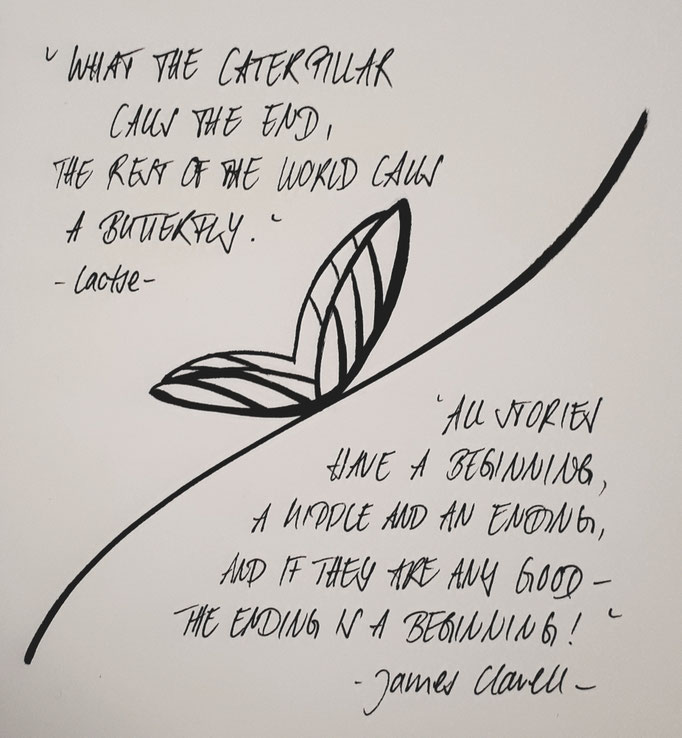 "WHAT THE CATERPILLAR
CALLS THE END,
THE REST OF THE WORLD CALLS
A BUTTERFLY."
- Laotse -
"ALL STORIES
HAVE A BEGINNING,
A MIDDLE AND AN ENDING,
AND IF THEY ARE ANY GOOD –
THE ENDING IS A BEGINNING!"
- James Clavell -